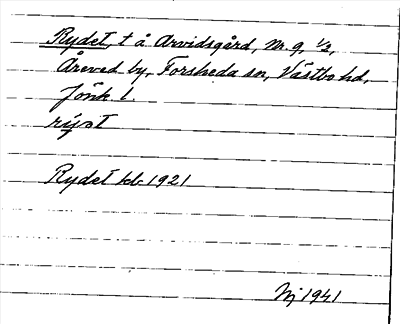 Rydet, t å Arvidsgård, Nr. 9, ½,
Åreved by, Forsheda sn, Västbo hd,
Jönk l.
rŷət
Rydet kb 1921
Nj 1941